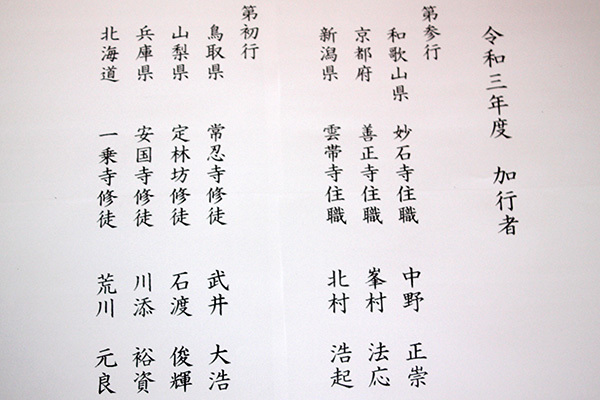 令和三年度 加行者
第参行
和歌山県 妙石寺住職 中野 正崇
京都府 善正寺住職 峯村 法応
新潟県 雲帯寺住職 北村 浩起
第初行
鳥取県 常忍寺修徒 武井 大浩
山梨県 定林坊修徒 石渡 俊輝
兵庫県 安国寺修徒 川添 裕資
北海道 一乗寺修徒 荒川 元良